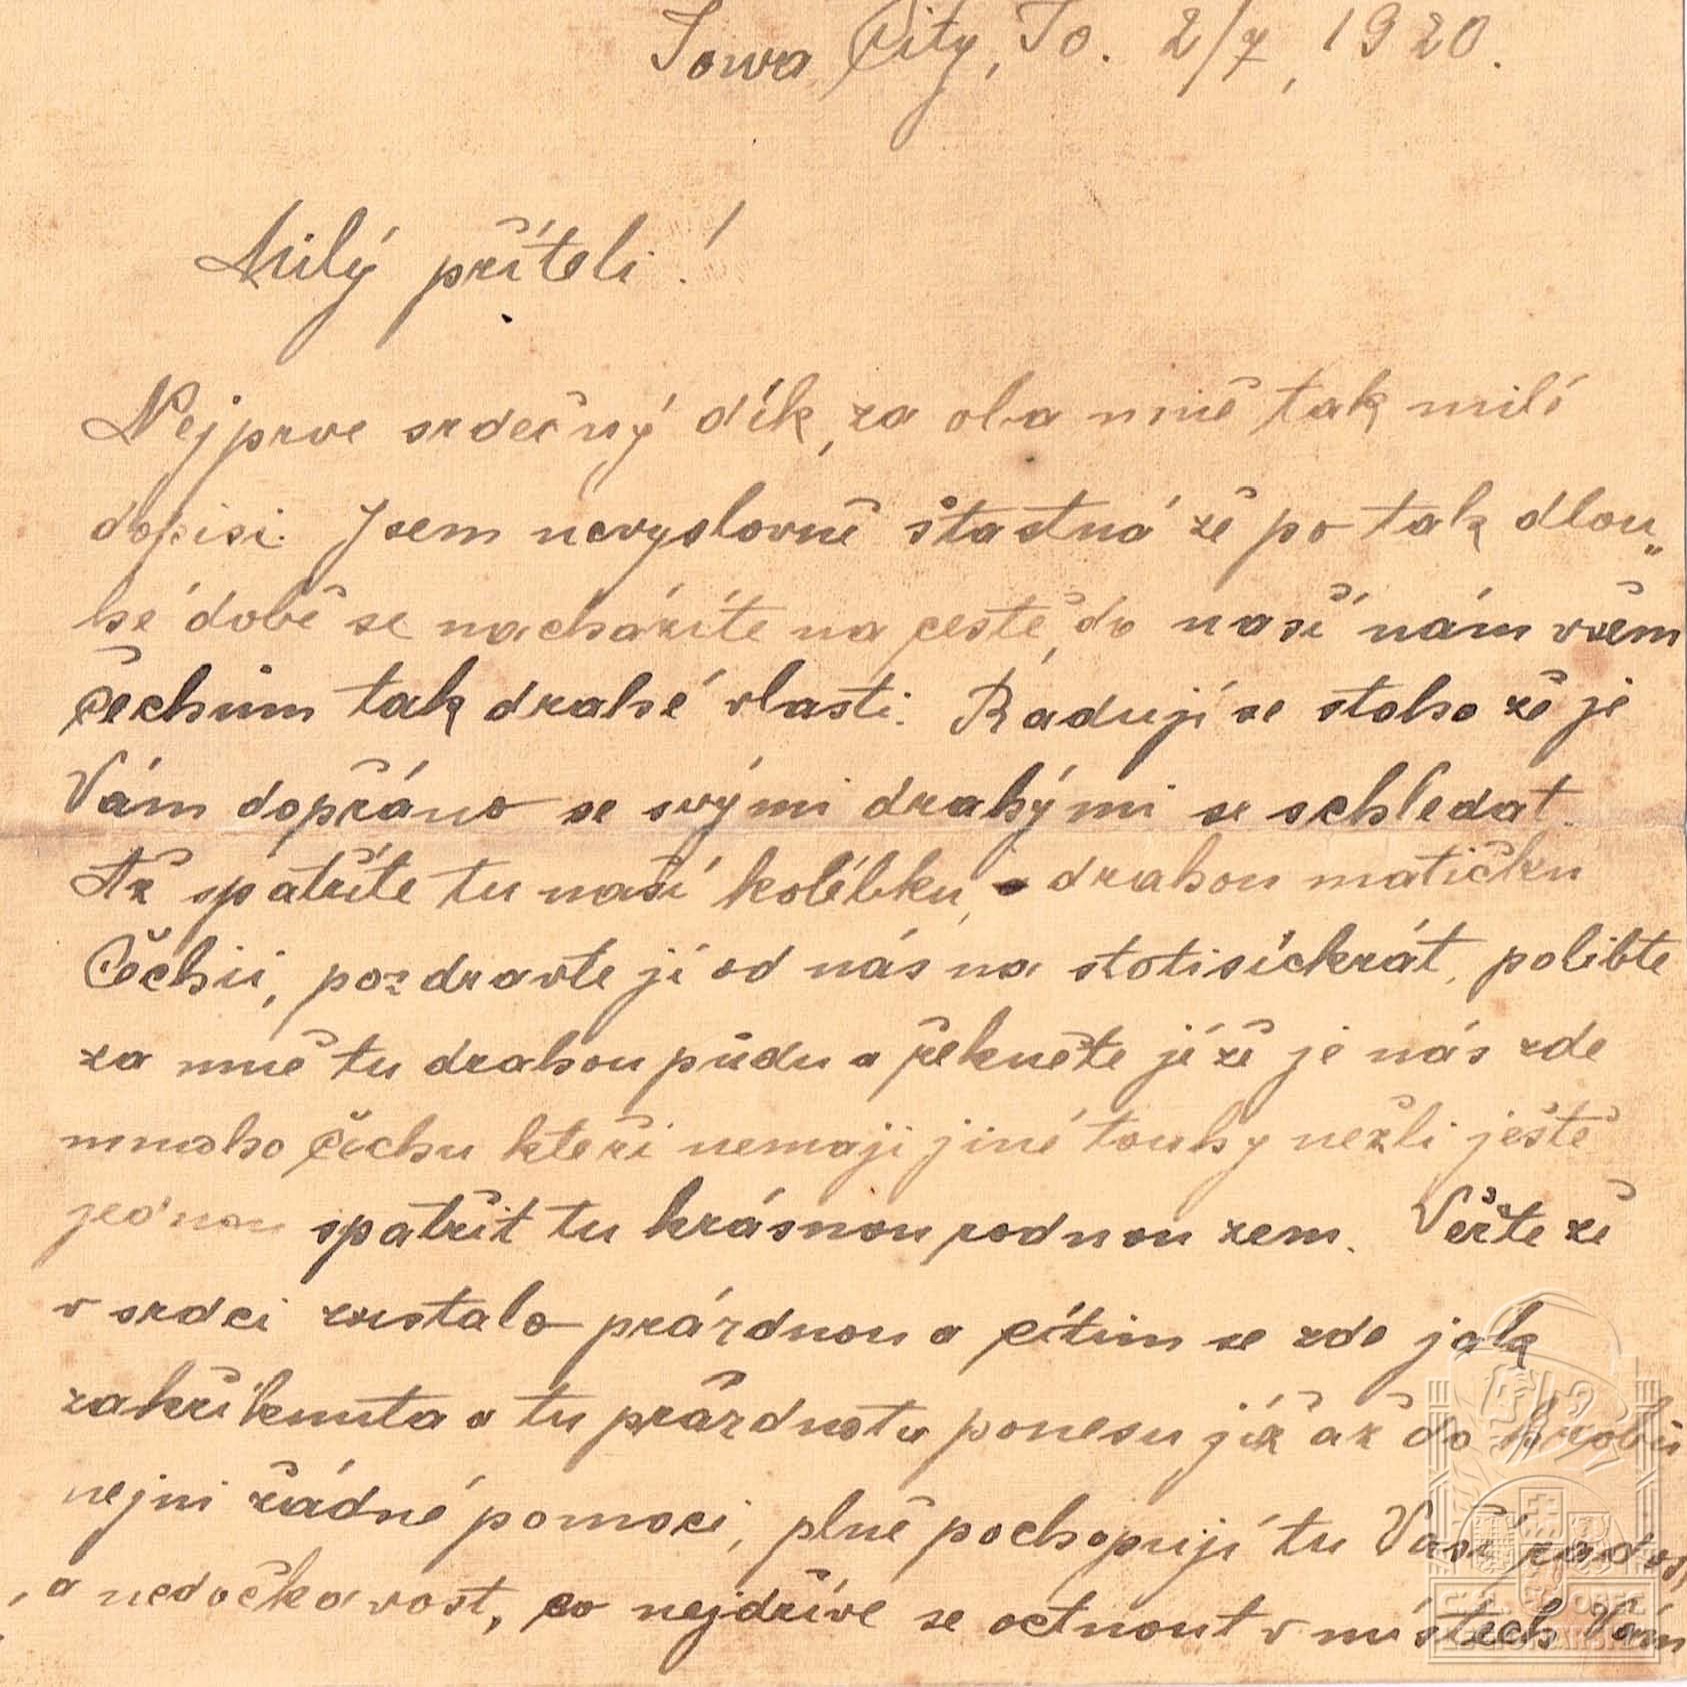 Iowa City, Io. 2/7, 1920.
Milý příteli!
Nejprve srdečný dík, za oba mně tak milí
dopisi. Jsem nevyslovně štastná že po tak dlou„
hé době se nacházíte na cestě, do naší nám všem
čechům tak drahé vlasti. Radují se stoho že je
Vám dopřáno se svými drahými se schledat.
Až spatříte tu naší kolébku, drahou matičku
Čechii, pozdravte jí od nás na stotisíckrát, polibte
za mně tu drahou půdu a řekněte jé že je nás zde
mnoho čechu kteři nemaji jiné touhy nežli ještě
jednou spatřit tu krásnou rodnou zem. Věřte že
v srdci zustalo prázdnou a cítim se zde jak
zakřiknuta a tu prázdnotu ponesu již až do hrobu
nejni žádné pomoci, plně pochopují tu Vaší rados,
, a nedočkavost, co nejdříve se octnout v místech Vám
ČS. OBEC
LEGIONÁŘSKÁ